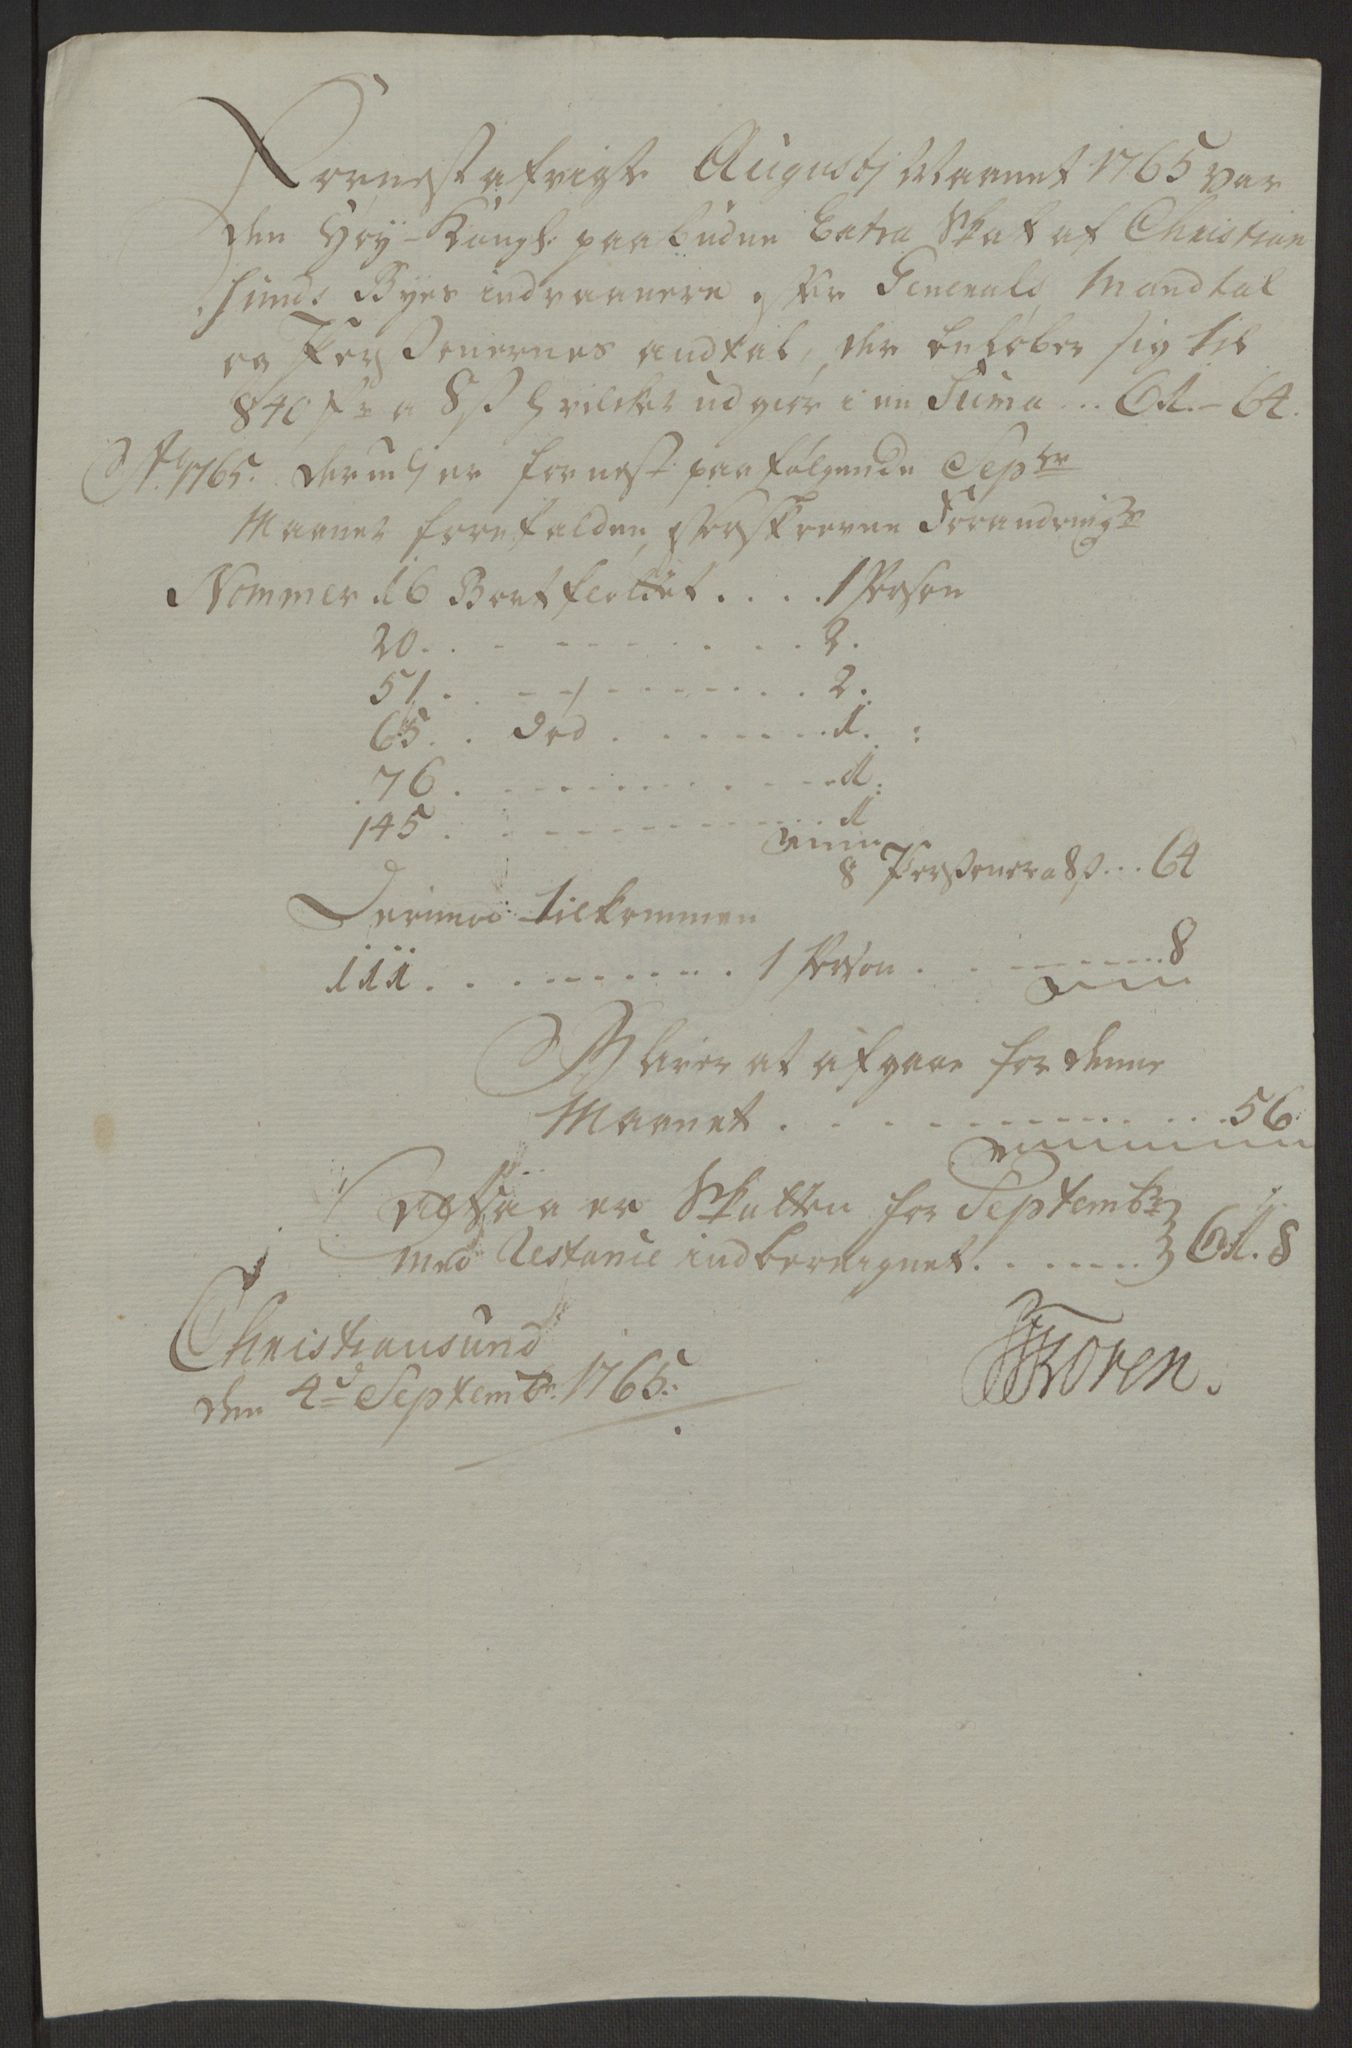 Fornestafvigte Augustj Maanet 1765 var
den Høy-Kongl: paabudne Extra Skat af Christian
sunds Byes indvaanere efter Generals Mandtal
og Perßonernes andtal, der beløber sig til
840 a 8 ß hvilket udgiør i een Suma ... 61.-64.
Ao. 1765. Derudj er for nest paafølgende Sepbr
Maanet forefalden efterskrevne Forandring
Nommer 16 Bortfløttet . . . . 1 Person
20. . . . . . . . . . 2.
51. . . . . . . . . . 2.
65. . død . . . . . . . . 1. :
76. . . . . . . . . . . 1.
145. . . . . . . . . . 1
8 Perßoner a 8 ß... 64
Derimod tilkommen
111. . . . . . . . . . 1 Person. . . . . . . . 8
Bliver at afgaae for denne
Maanet . . . . . . . . . . . 56
altsaa er Skatten for Septembr
med Restance indbereignet. . . . . . 61. 8
Christiansund
den 4d Septembr. 1765.
Koren.